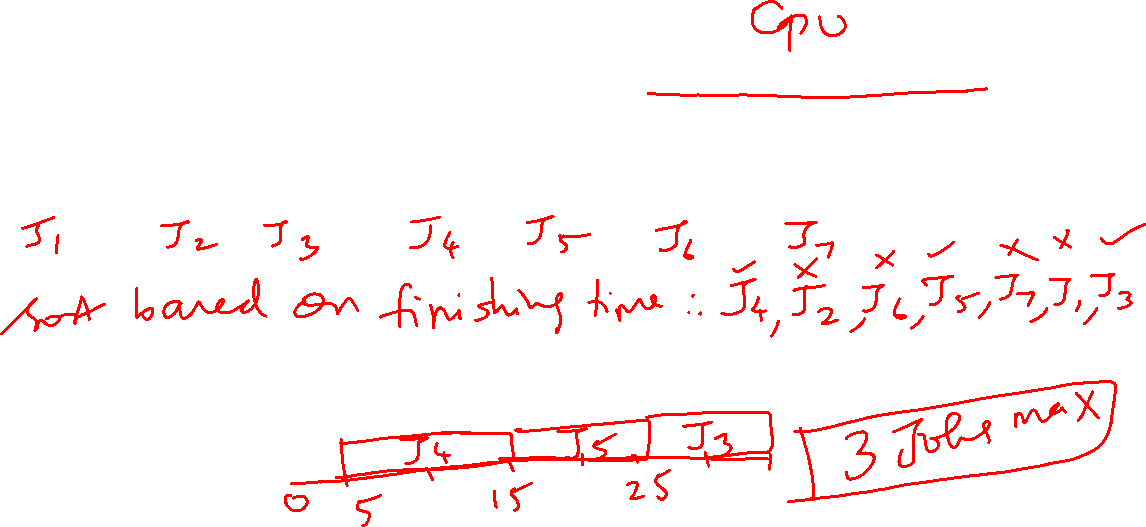 CPU
J1 J2 J3 J4 J5 J6 J7
✓ × × ✓ × × ✓
sort based on finishing time : J4, J2, J6, J5, J7, J1, J3
J4 J5 J3
0 5 15 25
3 Jobs max